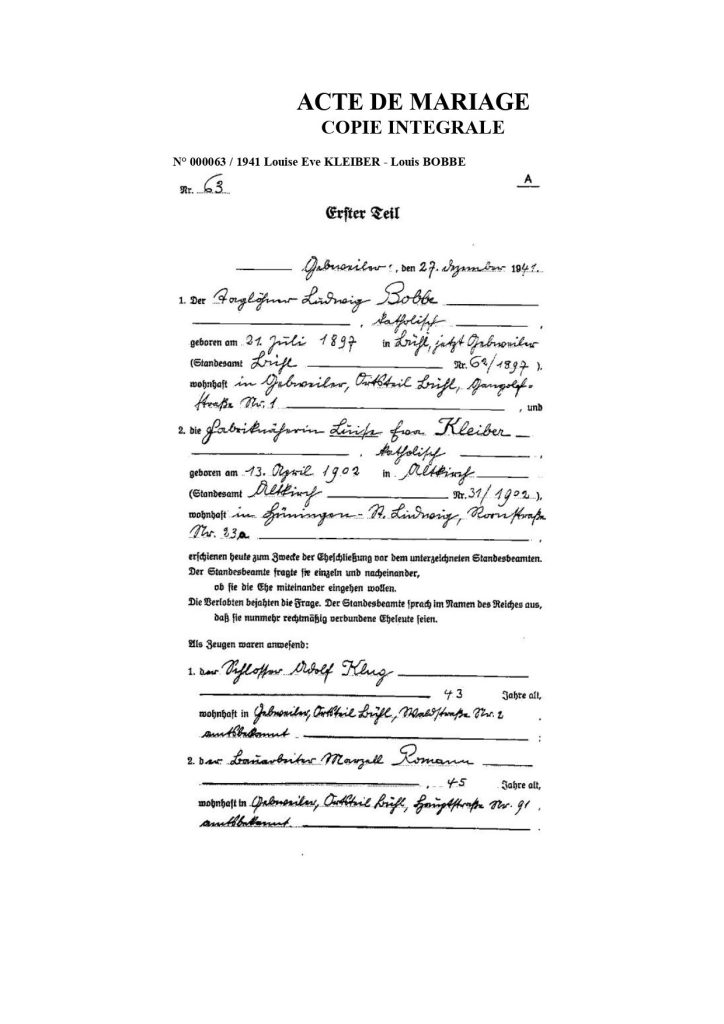 ACTE DE MARIAGE
COPIE INTEGRALE
N° 000063 / 1941 Louise Eve KLEIBER - Louis BOBBE
Nr. 63
A
Erster Teil
Gebweiler, den 27. Dezember 1941.
1. Der Taglöhner Ludwig Bobbe
, katholisch ,
geboren am 21. Juli 1897 in Bühl, jetzt Gebweiler
(Standesamt Bühl Nr. 62/1897 ).
wohnhaft in Gebweiler, Ortsteil Bühl, Gangolf-
straße Nr. 1 , und
2. die Fabriknäherin Luise Eva Kleiber
, katholisch ,
geboren am 13. April 1902 in Altkirch
(Standesamt Altkirch Nr. 31/1902 ),
wohnhaft in Hüningen - St. Ludwig, Roonstraße
Nr. 23a ,
erschienen heute zum Zwecke der Eheschließung vor dem unterzeichneten Standesbeamten.
Der Standesbeamte fragte sie einzeln und nacheinander,
ob sie die Ehe miteinander eingehen wollen.
Die Verlobten bejahten die Frage. Der Standesbeamte sprach im Namen des Reiches aus,
daß sie nunmehr rechtmäßig verbundene Eheleute seien.
Als Zeugen waren anwesend:
1. der Schlosser Adolf Klug
43 Jahre alt,
wohnhaft in Gebweiler, Ortsteil Bühl, Waldstraße Nr. 2
amtsbekannt ;
2. der Bauarbeiter Marzell Romann
, 45 Jahre alt,
wohnhaft in Gebweiler, Ortsteil Bühl, Hauptstraße Nr. 91 ,
amtsbekannt